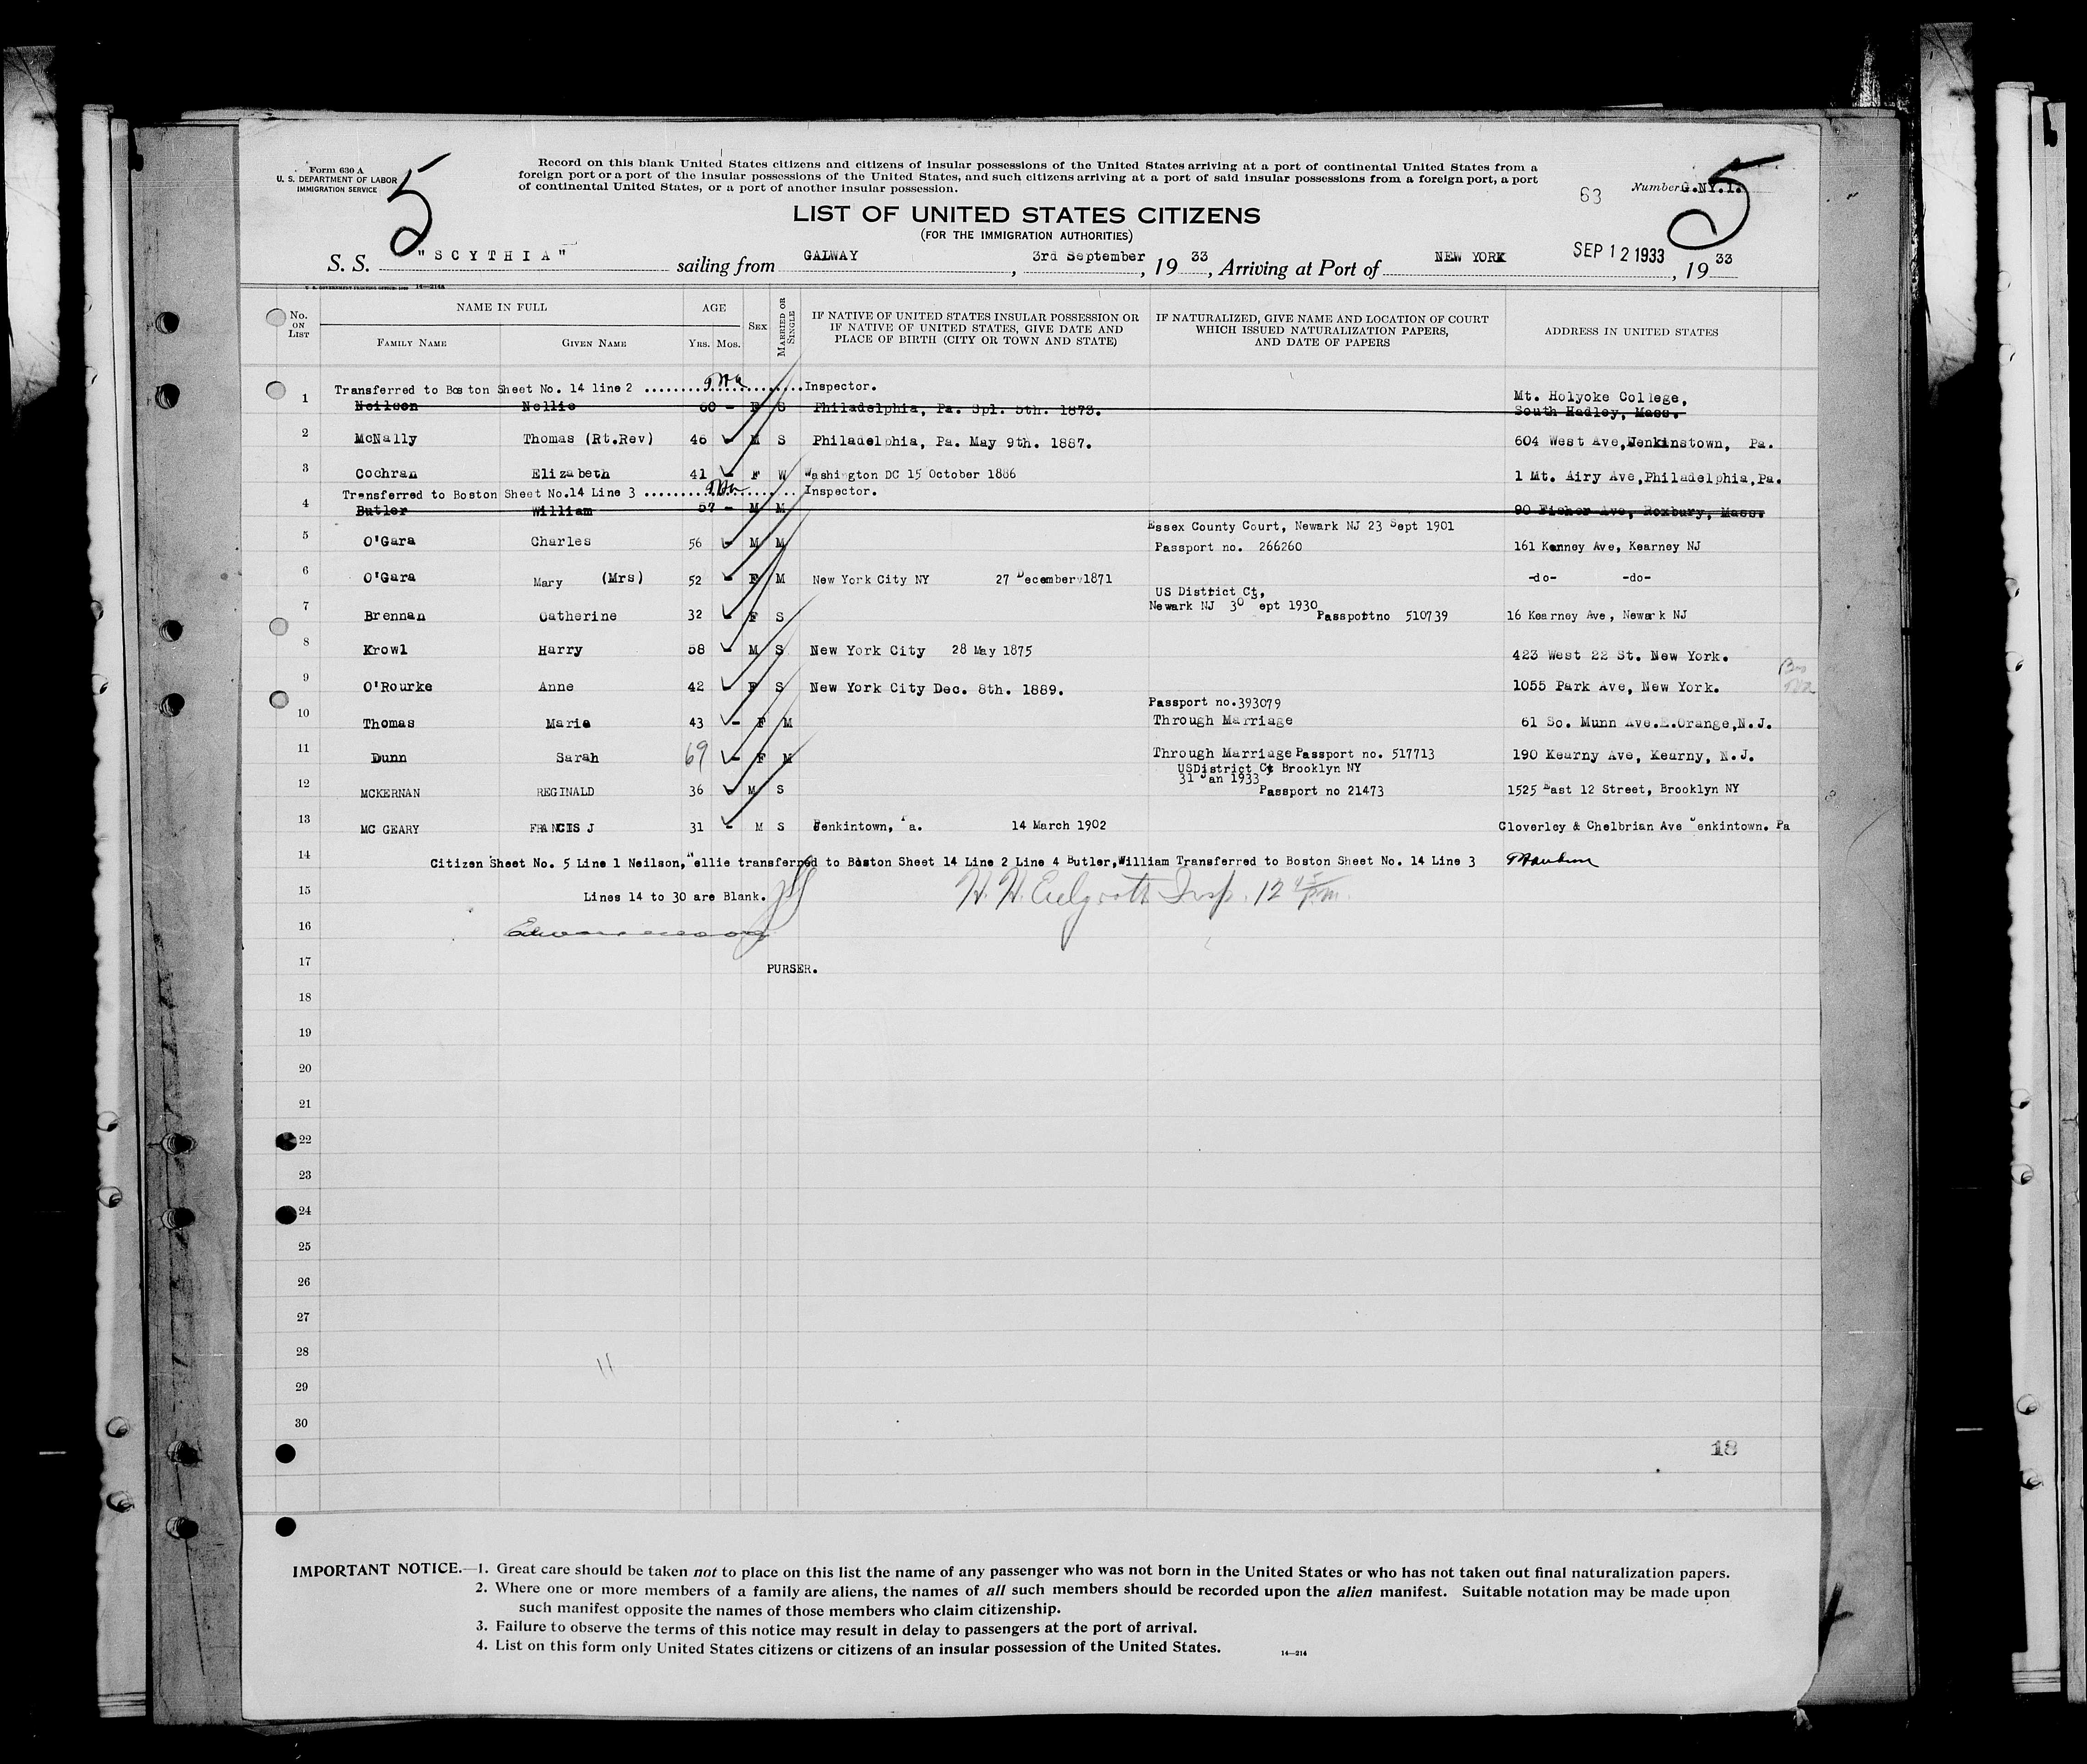 Form 630 A
U. S. DEPARTMENT OF LABOR
IMMIGRATION SERVICE
5
Record on this blank United States citizens and citizens of insular possessions of the United States arriving at a port of continental United States from a
foreign port or a port of the insular possessions of the United States, and such citizens arriving at a port of said insular possessions from a foreign port, a port
of continental United States, or a port of another insular possession.
63
Number G.NY.1.
5
LIST OF UNITED STATES CITIZENS
(FOR THE IMMIGRATION AUTHORITIES)
S. S. "SCYTHIA" sailing from GALWAY, 3rd September, 19 33, Arriving at Port of NEW YORK SEP 12 1933, 19 33
U. S. GOVERNMENT PRINTING OFFICE 14—214a
No. ON LIST NAME IN FULL AGE SEX MARRIED OR SINGLE IF NATIVE OF UNITED STATES INSULAR POSSESSION OR IF NATIVE OF UNITED STATES, GIVE DATE AND PLACE OF BIRTH (CITY OR TOWN AND STATE) IF NATURALIZED, GIVE NAME AND LOCATION OF COURT WHICH ISSUED NATURALIZATION PAPERS, AND DATE OF PAPERS ADDRESS IN UNITED STATES
FAMILY NAME GIVEN NAME YRS. MOS.
Transferred to Boston Sheet No. 14 line 2 .................... Inspector.
Mt. Holyoke College,
1 Neilson Nellie 60 - F S Philadelphia, Pa. Spl. 5th. 1873. South Hadley, Mass.
2 McNally Thomas (Rt.Rev) 46 - M S Philadelphia, Pa. May 9th. 1887. 604 West Ave,Jenkinstown, Pa.
3 Cochran Elizabeth 41 - F W Washington DC 15 October 1886 1 Mt. Airy Ave,Philadelphia,Pa.
Transferred to Boston Sheet No.14 Line 3 .................... Inspector.
4 Butler William 57 - M M 90 Fisher Ave, Roxbury, Mass.
Essex County Court, Newark NJ 23 Sept 1901
5 O'Gara Charles 56 - M M Passport no. 266260 161 Kenney Ave, Kearney NJ
6 O'Gara Mary (Mrs) 52 - F M New York City NY 27 December 1871 -do- -do-
US District Ct,
Newark NJ 30 ept 1930
7 Brennan Catherine 32 - F S Passportno 510739 16 Kearney Ave, Newark NJ
8 Krowl Harry 58 - M S New York City 28 May 1875 423 West 22 St. New York.
9 O'Rourke Anne 42 - F S New York City Dec. 8th. 1889. 1055 Park Ave, New York.
Passport no.393079
10 Thomas Marie 43 - F M Through Marriage 61 So. Munn Ave.E.Orange,N.J.
11 Dunn Sarah 69 - F M Through Marriage Passport no. 517713 190 Kearny Ave, Kearny, N.J.
USDistrict Ct Brooklyn NY
31 Jan 1933
12 MCKERNAN REGINALD 36 - M S Passport no 21473 1525 East 12 Street, Brooklyn NY
13 MC GEARY FRANCIS J 31 - M S Jenkintown, Pa. 14 March 1902 Cloverley & Chelbrian Ave Jenkintown. Pa
14 Citizen Sheet No. 5 Line 1 Neilson,Nellie transferred to Boston Sheet 14 Line 2 Line 4 Butler,William Transferred to Boston Sheet No. 14 Line 3
15 Lines 14 to 30 are Blank. Insp. 12 45 pm.
16
17 PURSER.
18
19
20
21
22
23
24
25
26
27
28
29
30
18
IMPORTANT NOTICE.—1. Great care should be taken not to place on this list the name of any passenger who was not born in the United States or who has not taken out final naturalization papers.
2. Where one or more members of a family are aliens, the names of all such members should be recorded upon the alien manifest. Suitable notation may be made upon
such manifest opposite the names of those members who claim citizenship.
3. Failure to observe the terms of this notice may result in delay to passengers at the port of arrival.
4. List on this form only United States citizens or citizens of an insular possession of the United States.
14—214